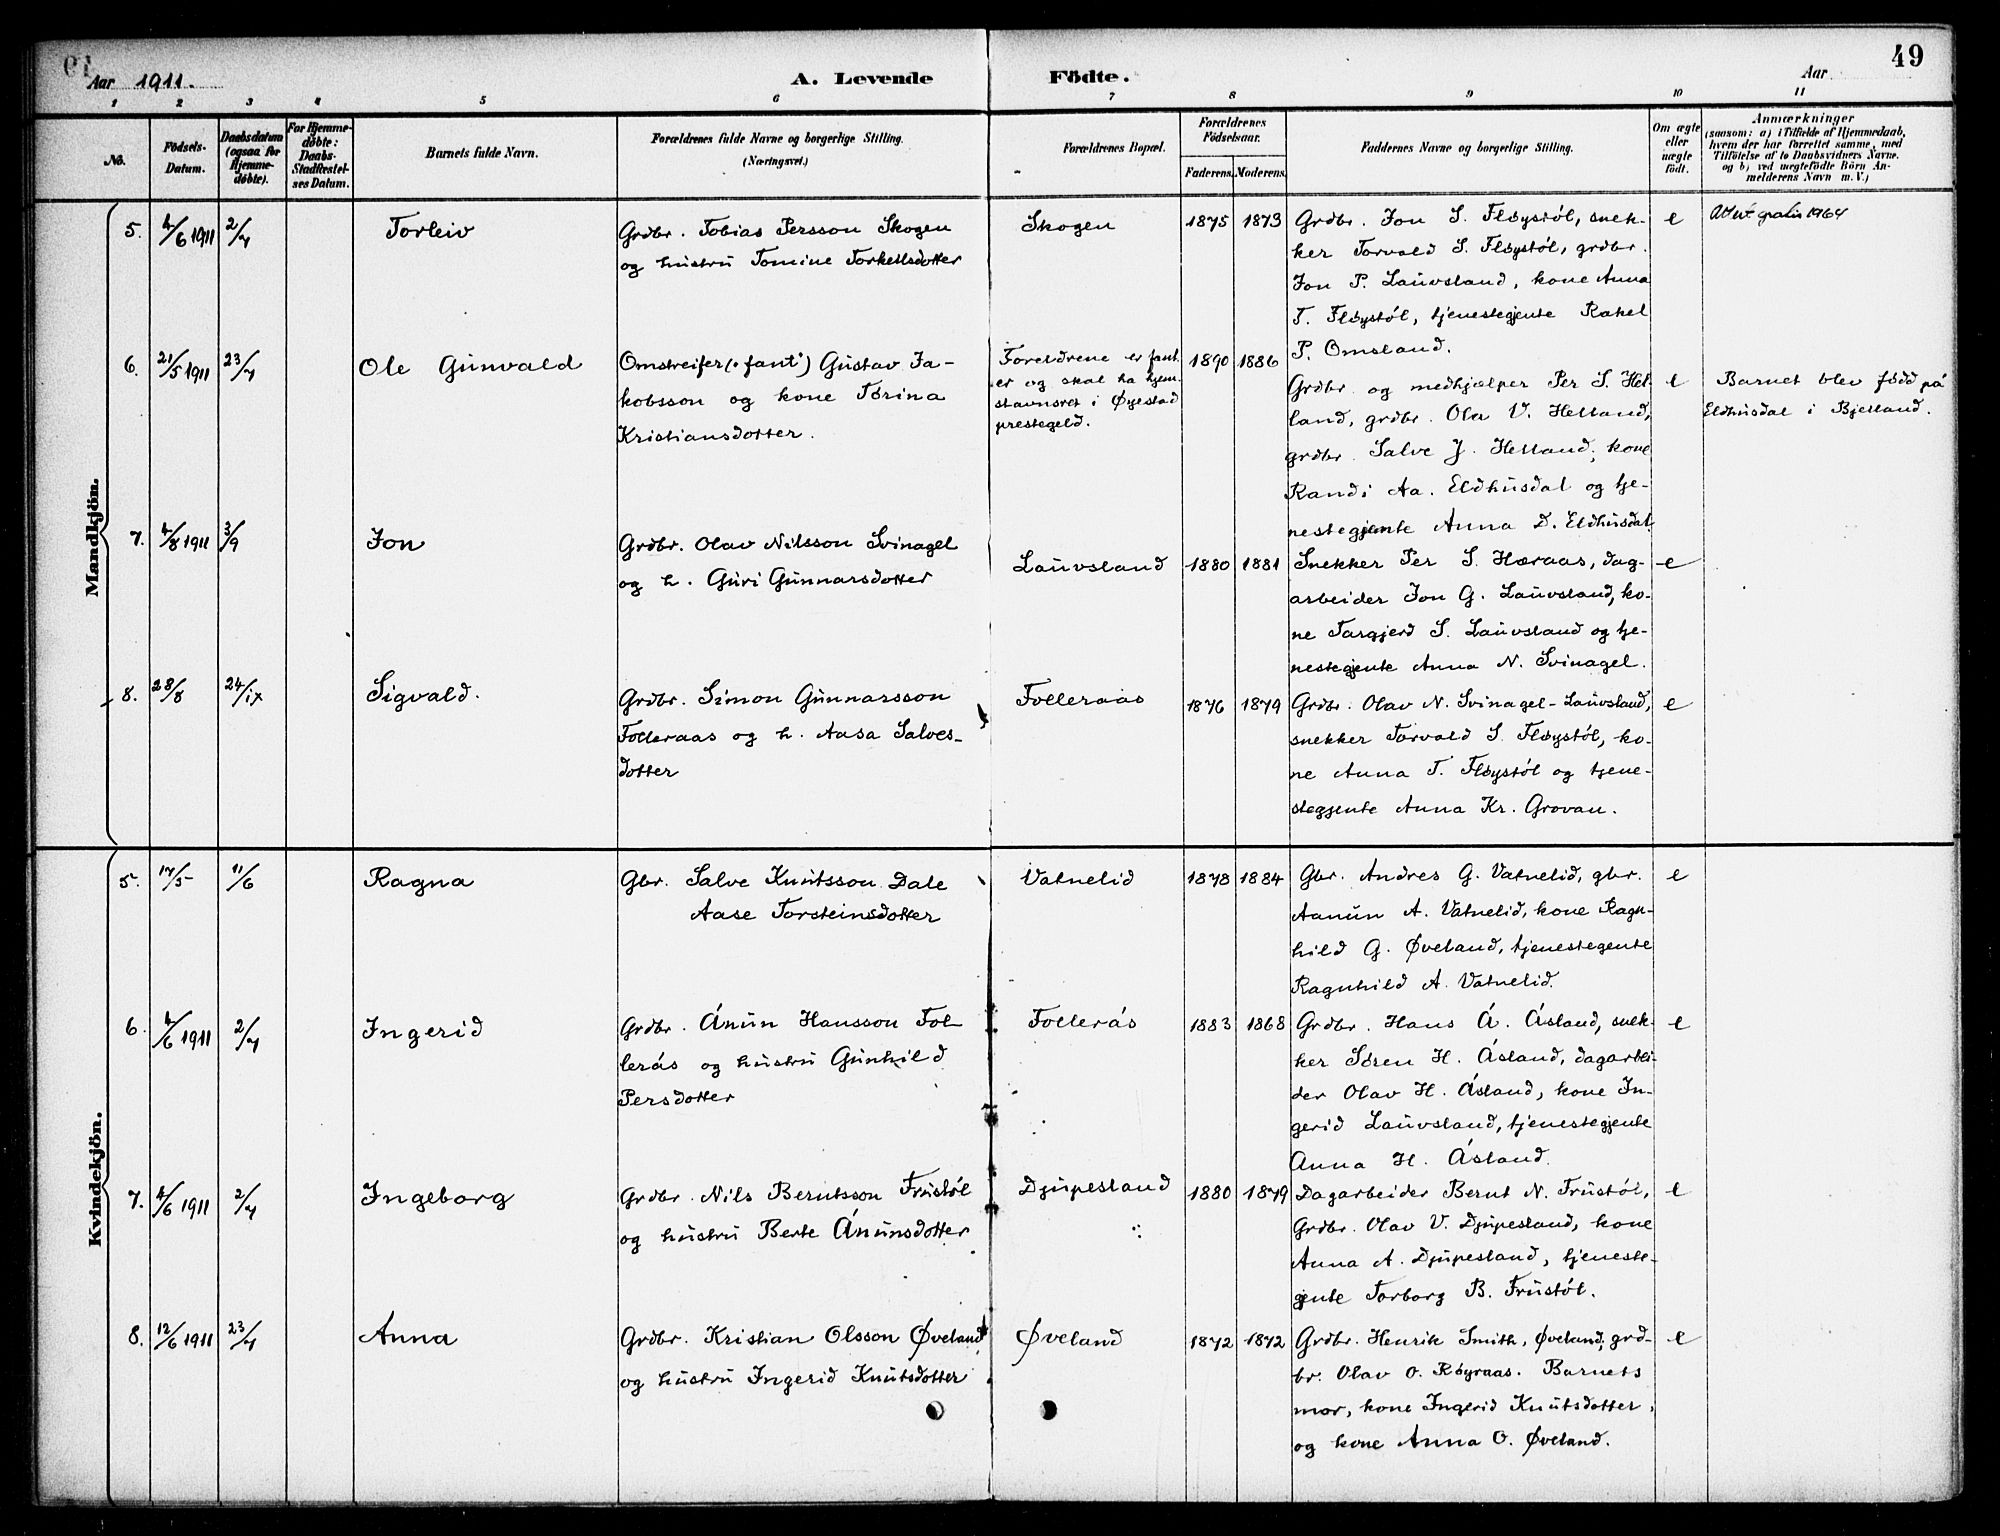 Aar 1911. A. Levende Födte. Aar 49
1 2 3 4 5 6 7 8 9 10 11
No.
Födsels-Datum.
Daabsdatum (ogsaa for Hjemme-döbte).
For Hjemme-döbte: Daabs-Stadfæstel-ses Datum.
Barnets fulde Navn.
Forældrenes fulde Navne og borgerlige Stilling.
(Næringsvei.)
Forældrenes Bopæl.
Forældrenes Födselsaar.
Faderens. Moderens.
Faddernes Navne og borgerlige Stilling.
Om ægte eller uægte födt.
Anmærkninger
(saasom: a) i Tilfælde af Hjemmedaab,
hvem der har forrettet samme, med
Tilföielse af to Daabsvidners Navne.
og b) ved uægtefödte Börn An-
melderens Navn m. V.)
Mandkjön.
5. 4/6 1911 2/7 Torleiv
Grdbr. Tobias Persson Skogen
og hustru Tomine Torkellsdotter
Skogen 1875 1873
Grdbr. Jon S. Fløystøl, snek-
ker Torvald S. Fløystøl, grdbr.
Jon P. Lauvsland, kone Anna
T. Fløystøl, tjenestegjente Rakel
P. Omsland.
e
Attest gratis 1964
6. 21/5 1911 23/7 Ole Gunvald
Omstreifer („fant“) Gustav Ja-
kobsson og kone Torina
Kristiansdotter.
Foreldrene er fant-
er og skal ha hjem-
stavnsret i Øyestad
prestegeld.
1890 1886
Grdbr. og medhjælper Per S. Hel-
land, grdbr. Ola V. Helland,
grdbr. Salve J. Helland, kone
Randi Aa. Eldhusdal og tje-
nestegjente Anna D. Eldhusdal.
e
Barnet blev født på
Eldhusdal i Bjelland.
7. 4/8 1911 3/9 Jon
Grdbr. Olav Nilsson Svinagel
og h. Guri Gunnarsdotter
Lauvsland 1880 1881
Snekker Per S. Høraas, dag-
arbeider Jon G. Lauvsland, ko-
ne Targjerd S. Lauvsland og tje-
nestegjente Anna N. Svinagel.
e
8. 28/8 24/ix Sigvald.
Grdbr. Simon Gunnarsson
Folleraas og h. Aasa Salves-
dotter
Folleraas 1876 1879
Grdbr. Olav N. Svinagel-Lauvsland,
snekker Torvald S. Fløystøl, ko-
ne Anna T. Fløystøl og tjene-
stegjente Anna Kr. Grovan.
e
Kvindekjön.
5. 17/5 11/6 Ragna
Gbr. Salve Knutsson Dale
Aase Torsteinsdotter
Vatnelid 1878 1884
Gbr. Andres G. Vatnelid, gbr.
Aanun A. Vatnelid, kone Ragn-
hild G. Øveland, tjenestegente
Ragnhild A. Vatnelid.
e
6. 4/6 1911 2/7 Ingerid
Grdbr. Ánun Hansson Fol
lerás og hustru Gunhild
Persdotter
Follerás 1883 1868
Grdbr. Hans Á. Ásland, snek-
ker Søren H. Ásland, dagarbei-
der Olav H. Ásland, kone In-
gerid Lauvsland, tjenestegjente
Anna H. Ásland.
e
7. 4/6 1911 2/7 Ingeborg
Grdbr. Nils Berntsson Frustøl
og hustru Berte Ánunsdotter
Djupesland 1880 1879
Dagarbeider Bernt N. Frustøl,
Grdbr. Olav V. Djupesland, kone
Anna A. Djupesland, tjeneste-
gjente Torborg B. Frustøl.
e
8. 12/6 1911 23/7 Anna
Grdbr. Kristian Olsson Øveland
og hustru Ingerid Knutsdotter
Øveland 1872 1872
Grdbr. Henrik Smith, Øveland, grd-
br. Olav O. Røyraas. Barnets
mor, kone Ingerid Knutsdotter,
og kone Anna O. Øveland.
e